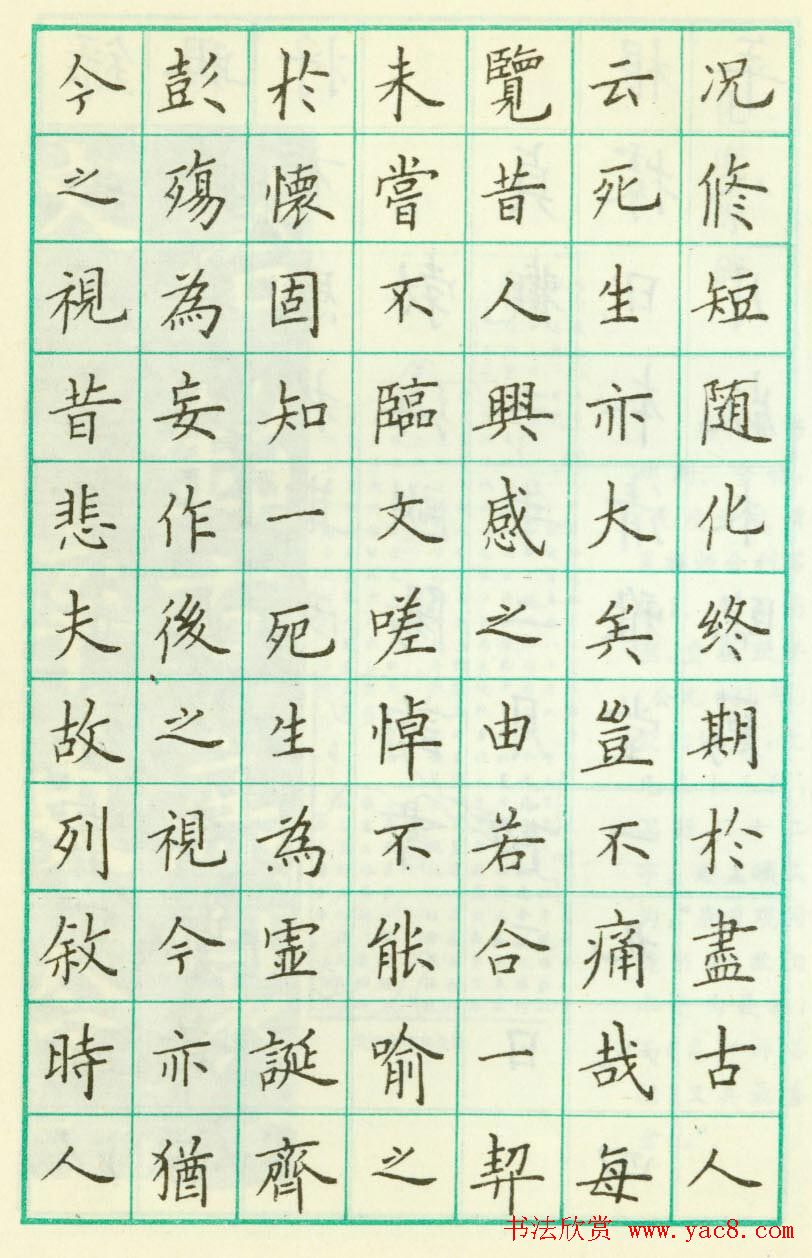 况修短随化终期於盡古人
云死生亦大矣豈不痛哉每
覽昔人興感之由若合一契
未嘗不臨文嗟悼不能喻之
於懷固知一死生為虚誕齊
彭殤為妄作後之視今亦猶
今之視昔悲夫故列敘時人
书法欣赏 www.yac8.com